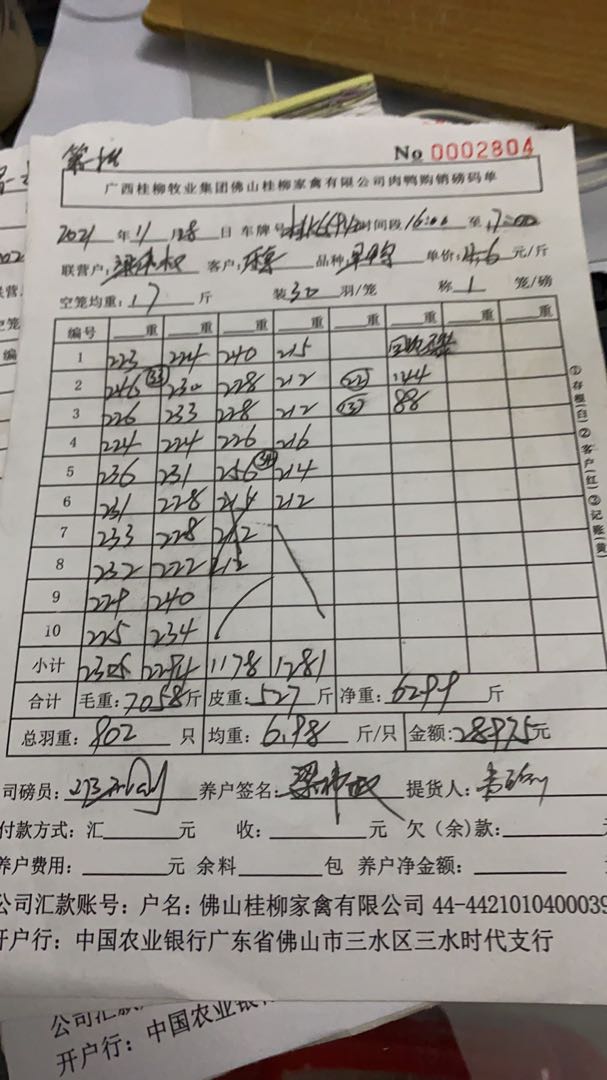 No 0002804
广西桂柳牧业集团佛山桂柳家禽有限公司肉鸭购销磅码单
2021 年 11 月 28 日 车牌号 时间段 16:00 至 17:00
联营户: 客户: 品种 单价: 4.6 元/斤
空笼均重: 17 斤 装 30 羽/笼 称 1 笼/磅
编号 重 重 重 重 重 重 重 重
1 223 224 240 215
2 246 (33) 230 228 212 (22) 144
3 226 233 228 212 (13) 88
4 224 224 226 216
5 236 231 256 214
6 231 228 214 212
7 233 228 212
8 232 222 212
9 229 240
10 225 234
小计 2305 2294 1178 1281
合计 毛重: 7058 斤 皮重: 527 斤 净重: 6299 斤
总羽重: 902 只 均重: 6.98 斤/只 金额: 28975 元
司磅员: 养户签名: 提货人:
付款方式: 汇 元 收: 元 欠(余)款:
养户费用: 元 余料 包 养户净金额:
公司汇款账号: 户名: 佛山桂柳家禽有限公司 44-4421010400039
开户行: 中国农业银行广东省佛山市三水区三水时代支行
①存根(白)②客户(红)③记账(黄)
公司汇款
开户行: 中国农业银